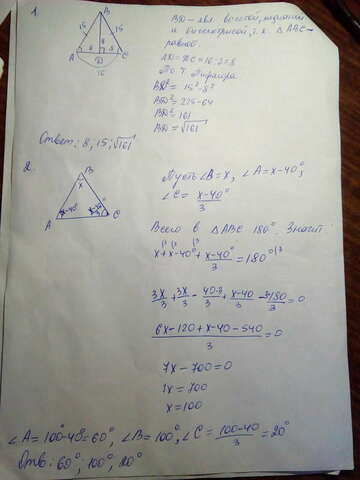 1.
B
15
15
8
8
8
A
D
C
16
BD - явл. высотой, медианой
и биссектрисой, т.к. △ABC -
равноб.
AD = DC = 16:2 = 8
По т. Пифагора
BD² = 15² - 8²
BD² = 225 - 64
BD² = 161
BD = √161
Ответ: 8, 15; √161
2.
B
x
A
x-40
C
Пусть ∠B = x, ∠A = x-40°,
∠C = (x-40°)/3
Всего в △ABC 180°. Значит
x + x - 40° + (x-40°)/3 = 180° |·3
3x/3 + 3x/3 - 40·3/3 + (x-40)/3 - 3·180/3 = 0
(6x - 120 + x - 40 - 540)/3 = 0
7x - 700 = 0
7x = 700
x = 100
∠A = 100°-40 = 60°, ∠B = 100°, ∠C = (100-40)/3 = 20°
Отв: 60°, 100°, 20°